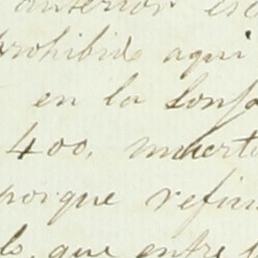 anterior es
prohibido aqui
en la Lonja
400. muerto
porque refiri
lo, que entre